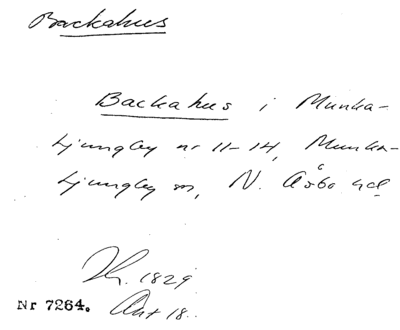 Backahus
Backahus i Munka-
Ljungby nr 11-14, Munka-
Ljungby sn, N. Åsbo hd
1829
Nr 7264. Akt 18.